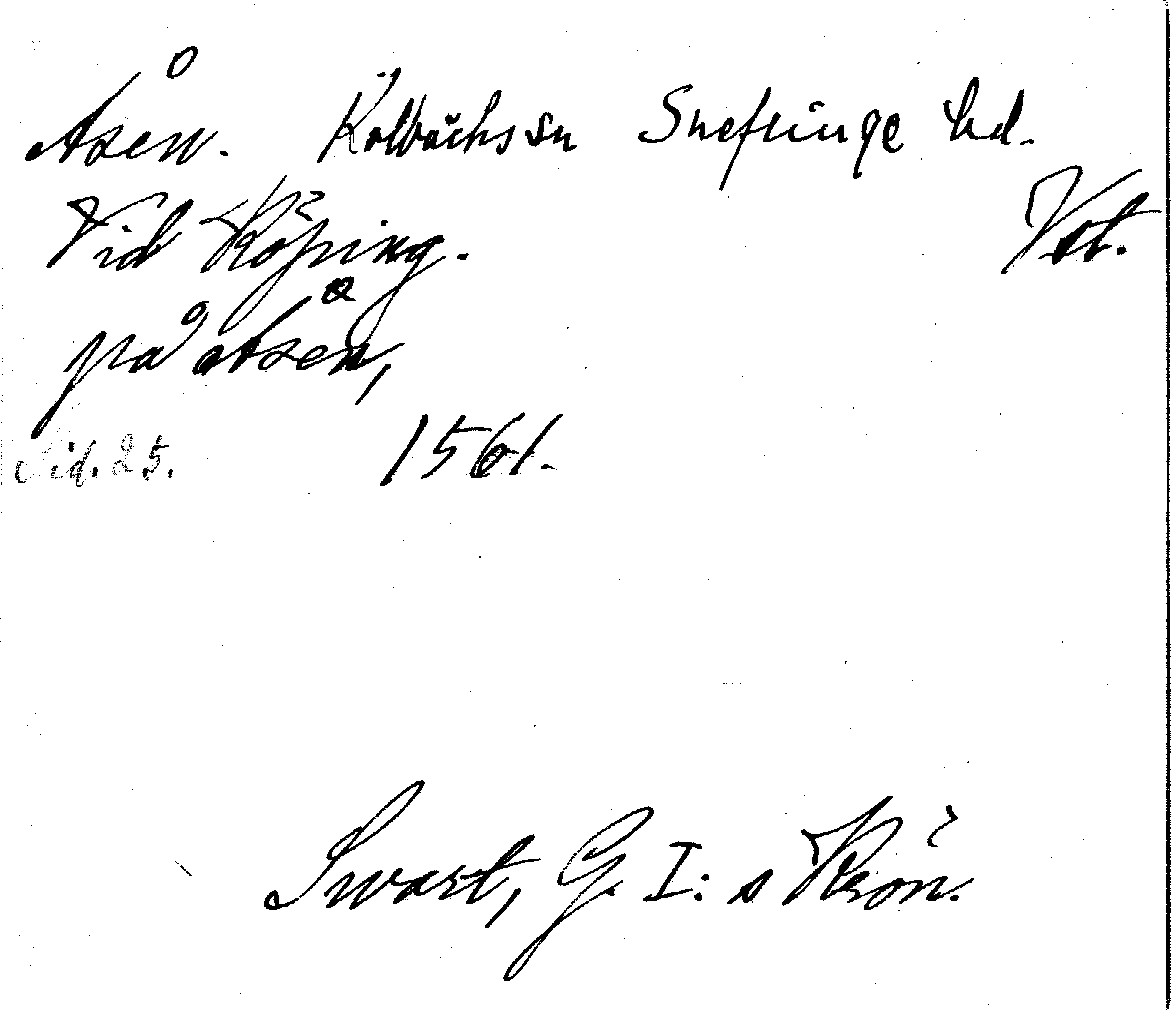 Åsen. Kolbäcks sn Snefringe hd.
Vid Köping. Vst.
på Åsen,
Sid. 25. 1561.
Swart, G. I: s Krön.